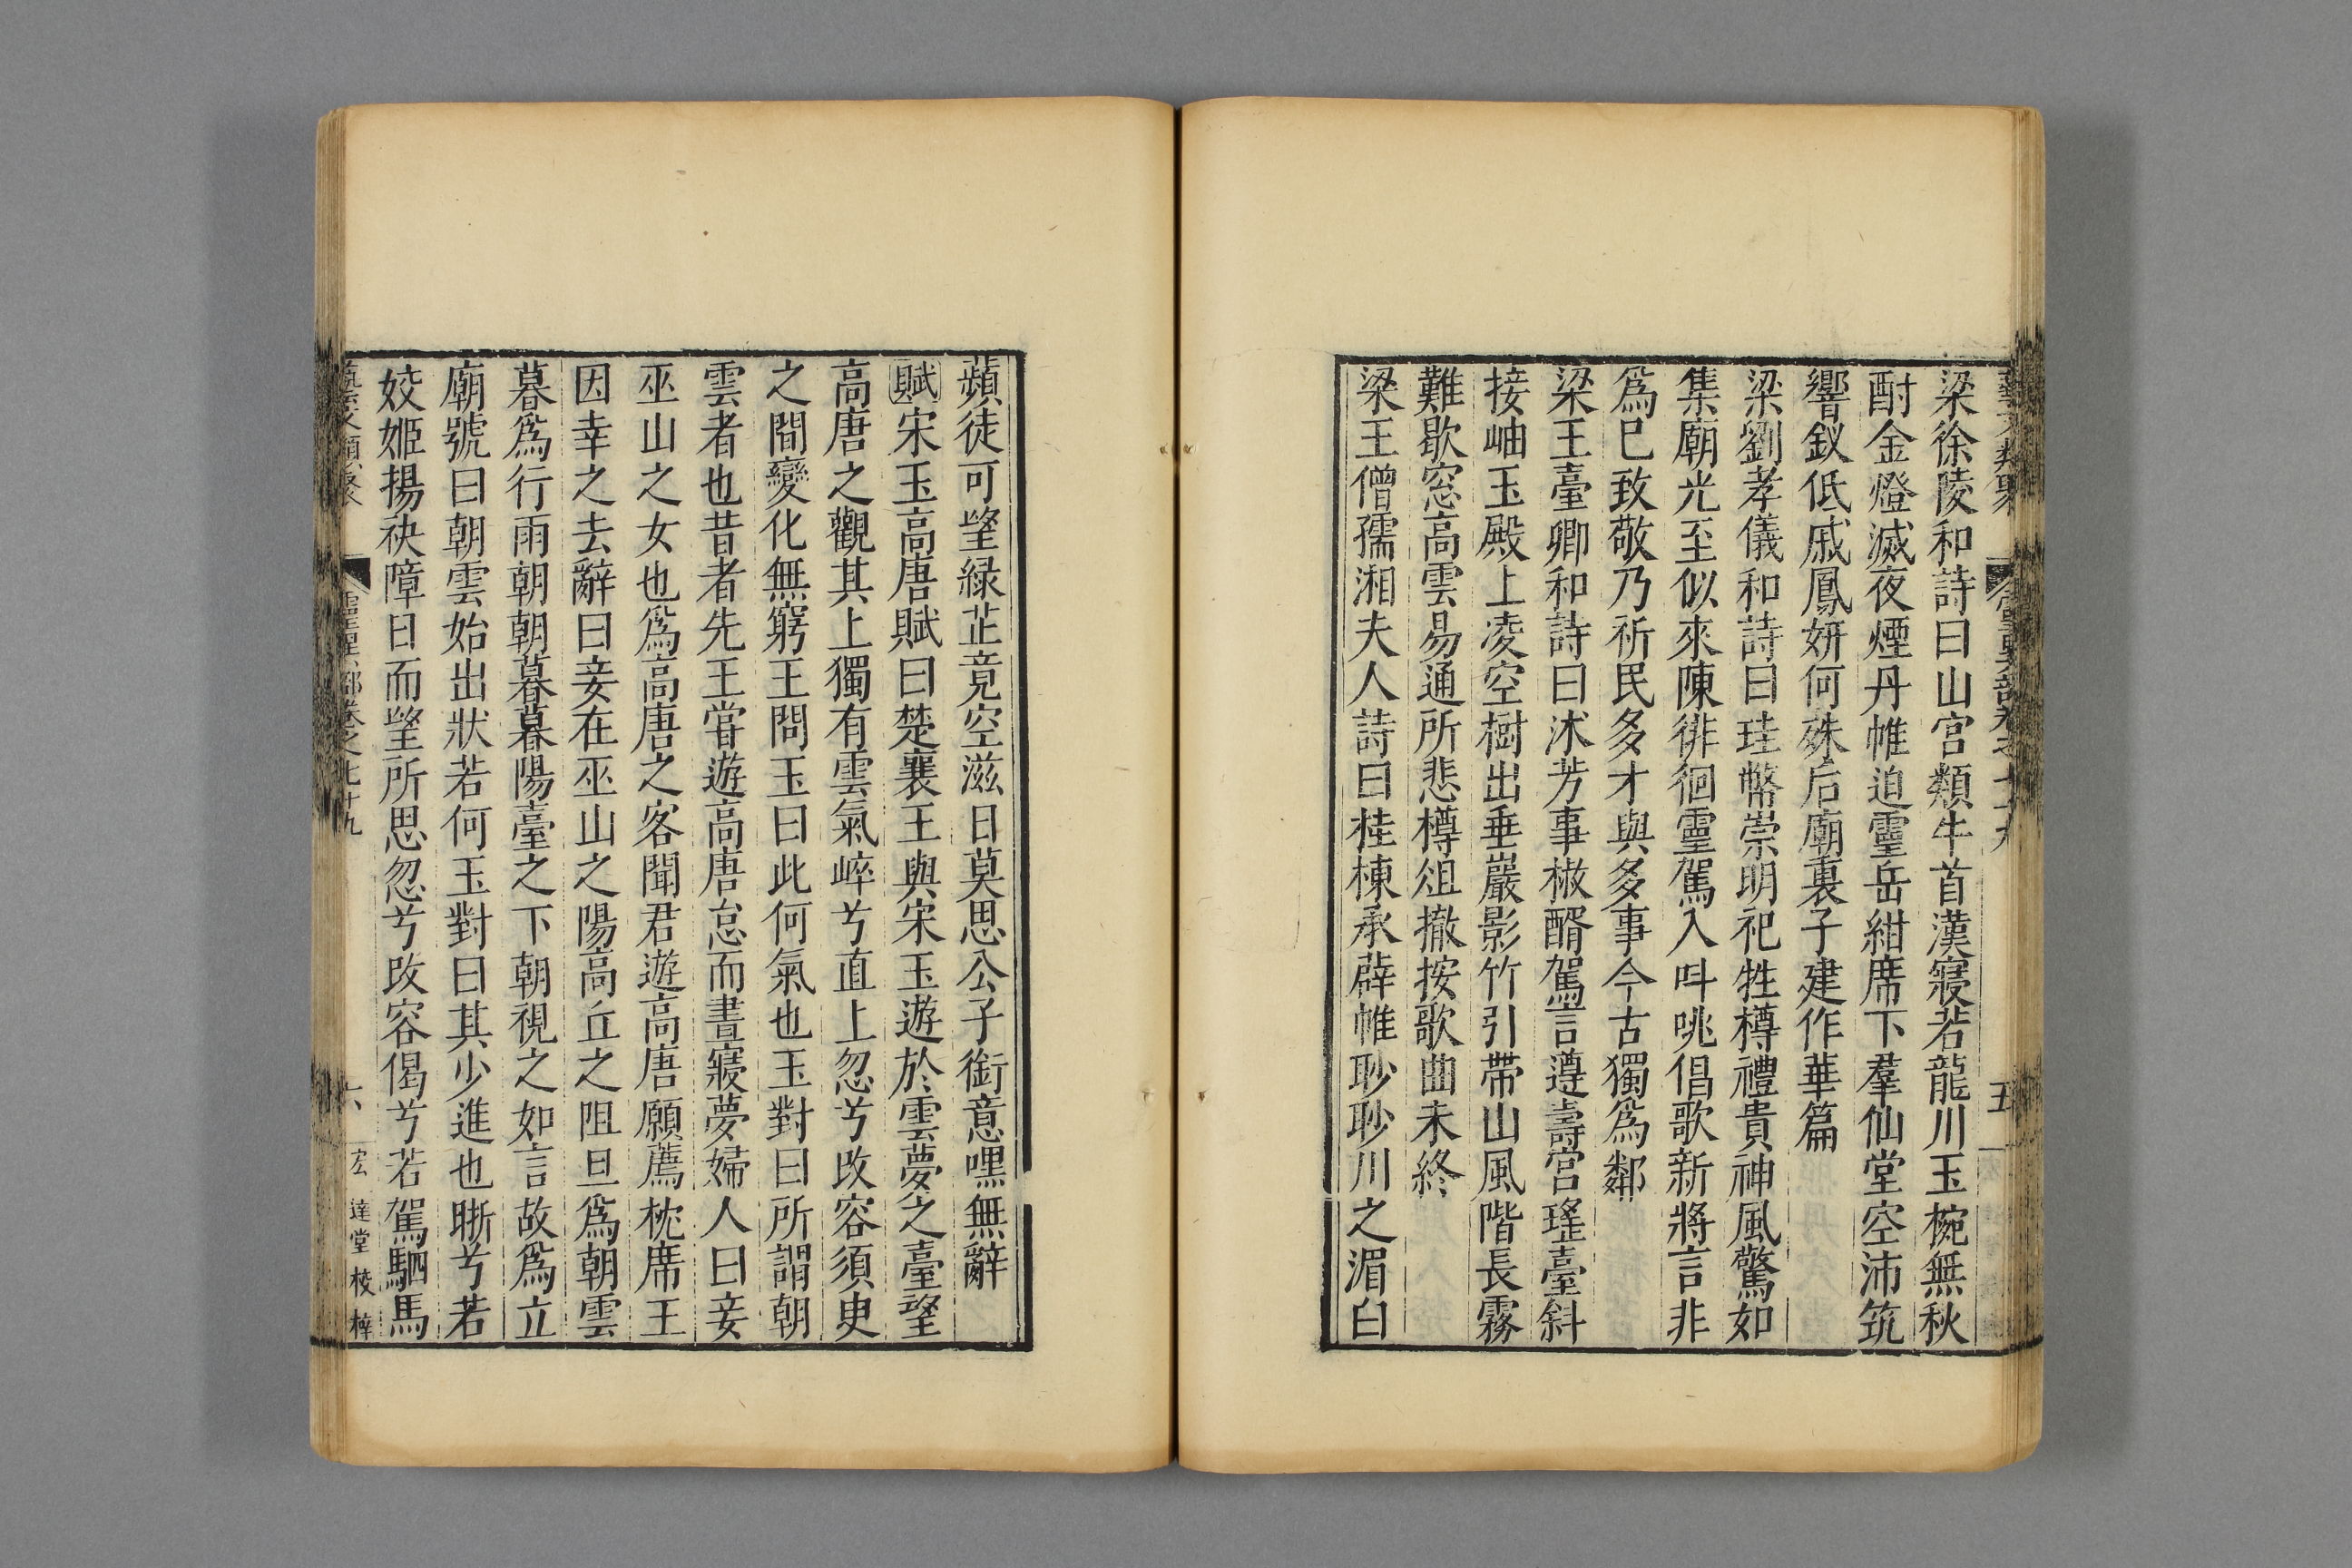 梁徐陵和詩曰山宮類牛首漢寢若龍川玉椀無秋
酎金燈滅夜煙丹帷迫靈岳紺席下羣仙堂空沛筑
響釵低戚鳳妍何殊后廟裏子建作華篇
梁劉孝儀和詩曰珪幣崇明祀牲樽禮貴神風驚如
集廟光至似來陳徘徊靈駕入呌咷倡歌新將言非
爲巳致敬乃祈民多才與多事今古獨爲鄰
梁王臺卿和詩曰沐芳事椒醑駕言遵壽宮瑤臺斜
接岫玉殿上凌空樹出垂巖影竹引帶山風階長霧
難歇窓高雲易通所悲樽俎撤按歌曲未終
梁王僧孺湘夫人詩曰桂棟承薜帷眇眇川之湄白
蘋徒可望綠芷竟空滋日莫思公子銜意嘿無辭
賦宋玉高唐賦曰楚襄王與宋玉遊於雲夢之臺望
高唐之觀其上獨有雲氣崪兮直上忽兮改容須臾
之間變化無窮王問玉曰此何氣也玉對曰所謂朝
雲者也昔者先王甞遊高唐怠而晝寢夢婦人曰妾
巫山之女也爲高唐之客聞君遊高唐願薦枕席王
因幸之去辭曰妾在巫山之陽高丘之阻旦爲朝雲
暮爲行雨朝朝暮暮陽臺之下朝視之如言故爲立
廟號曰朝雲始出狀若何玉對曰其少進也晣兮若
姣姬揚袂障日而望所思忽兮改容偈兮若駕駟馬
藝文類聚 靈異部卷之七十九 六 宏達堂校梓